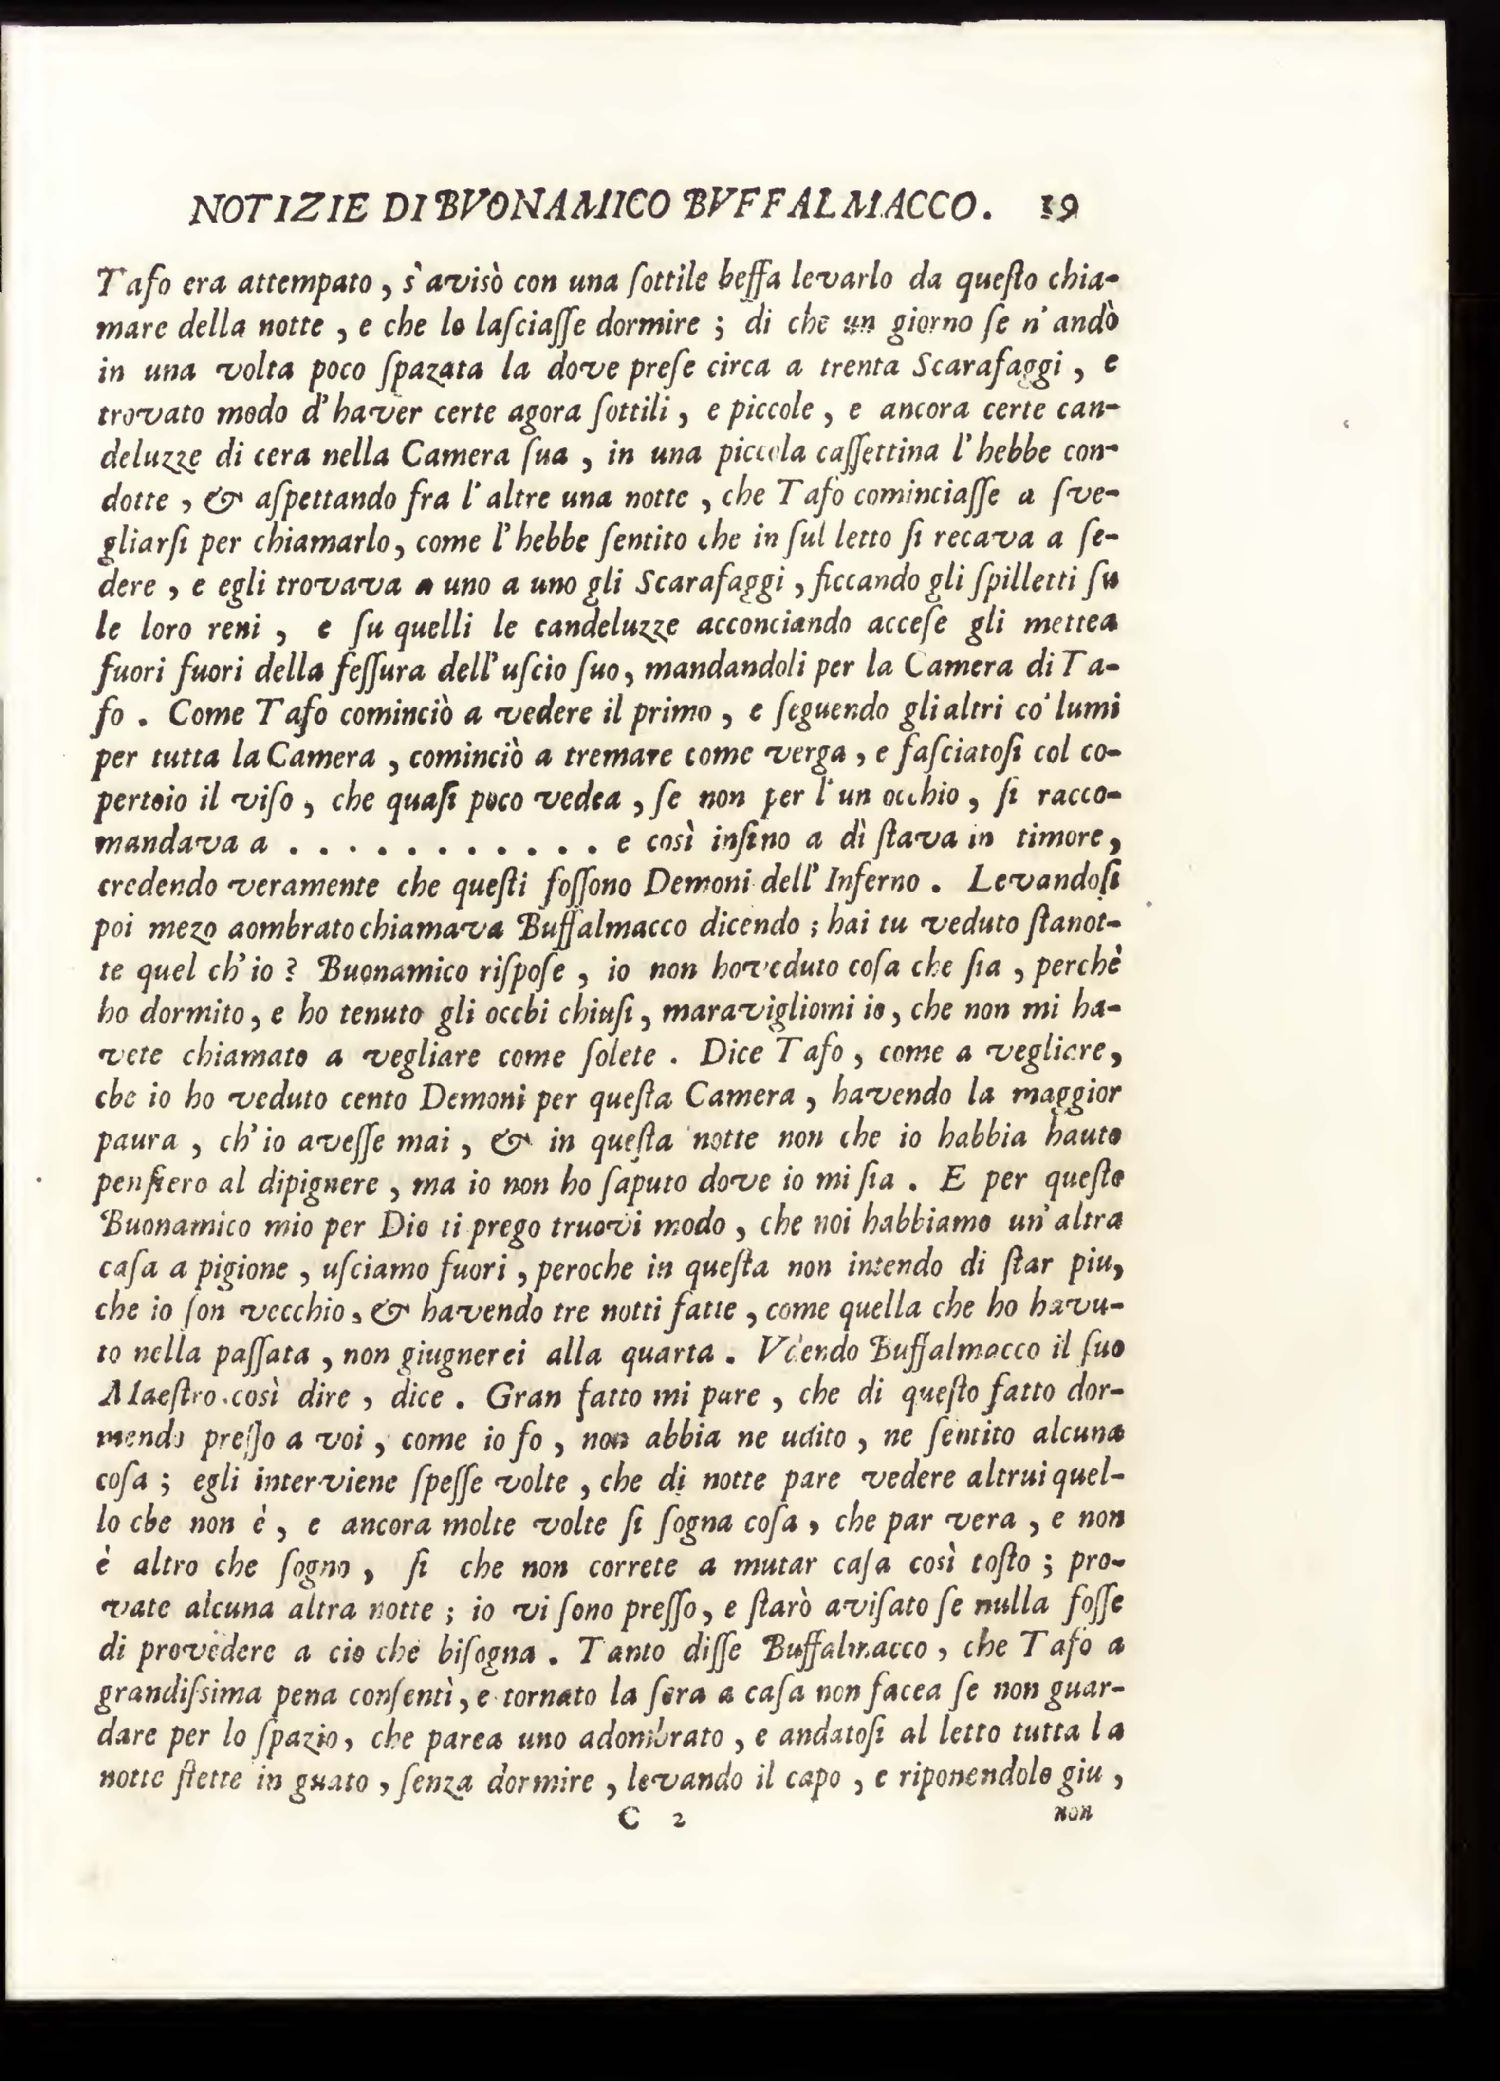 NOTIZIE DI BVONAMICO BVFFALMACCO. 19
Tafo era attempato, s'avisò con una ſottile beffa levarlo da queſto chia-
mare della notte, e che lo laſciaſſe dormire; di che un giorno ſe n'andò
in una volta poco ſpazata la dove preſe circa a trenta Scarafaggi, e
trovato modo d'haver certe agora ſottili, e piccole, e ancora certe can-
deluzze di cera nella Camera ſua, in una piccola caſſettina l'hebbe con-
dotte, & aſpettando fra l'altre una notte, che Tafo cominciaſſe a ſve-
gliarſi per chiamarlo, come l'hebbe ſentito che in ſul letto ſi recava a ſe-
dere, e egli trovava a uno a uno gli Scarafaggi, ficcando gli ſpilletti ſu
le loro reni, e ſu quelli le candeluzze acconciando acceſe gli mettea
fuori fuori della feſſura dell'uſcio ſuo, mandandoli per la Camera di Ta-
fo. Come Tafo cominciò a vedere il primo, e ſeguendo gli altri co' lumi
per tutta la Camera, cominciò a tremare come verga, e faſciatoſi col co-
pertoio il viſo, che quaſi poco vedea, ſe non per l'un occhio, ſi racco-
mandava a . . . . . . . . . . . e così inſino a dì ſtava in timore,
credendo veramente che queſti foſſono Demoni dell'Inferno. Levandoſi
poi mezo aombrato chiamava Buffalmacco dicendo; hai tu veduto ſtanot-
te quel ch'io? Buonamico riſpoſe, io non ho veduto coſa che ſia, perchè
ho dormito, e ho tenuto gli occhi chiuſi, maravigliomi io, che non mi ha-
vete chiamato a vegliare come ſolete. Dice Tafo, come a vegliare,
che io ho veduto cento Demoni per queſta Camera, havendo la maggior
paura, ch'io aveſſe mai, & in queſta notte non che io habbia hauto
penſiero al dipignere, ma io non ho ſaputo dove io mi ſia. E per queſto
Buonamico mio per Dio ti prego truovi modo, che noi habbiamo un'altra
caſa a pigione, uſciamo fuori, peroche in queſta non intendo di ſtar piu,
che io ſon vecchio, & havendo tre notti fatte, come quella che ho havu-
to nella paſſata, non giugnerei alla quarta. Vdendo Buffalmacco il ſuo
Maeſtro così dire, dice. Gran fatto mi pare, che di queſto fatto dor-
mendo preſſo a voi, come io fo, non abbia ne udito, ne ſentito alcuna
coſa; egli interviene ſpeſſe volte, che di notte pare vedere altrui quel-
lo che non è, e ancora molte volte ſi ſogna coſa, che par vera, e non
è altro che ſogno, ſi che non correte a mutar caſa così toſto; pro-
vate alcuna altra notte; io vi ſono preſſo, e ſtarò aviſato ſe nulla foſſe
di provedere a cio che biſogna. Tanto diſſe Buffalmacco, che Tafo a
grandiſsima pena conſentì, e tornato la ſera a caſa non facea ſe non guar-
dare per lo ſpazio, che parea uno adombrato, e andatoſi al letto tutta la
notte ſtette in guato, ſenza dormire, levando il capo, e riponendolo giu,
C 2 non